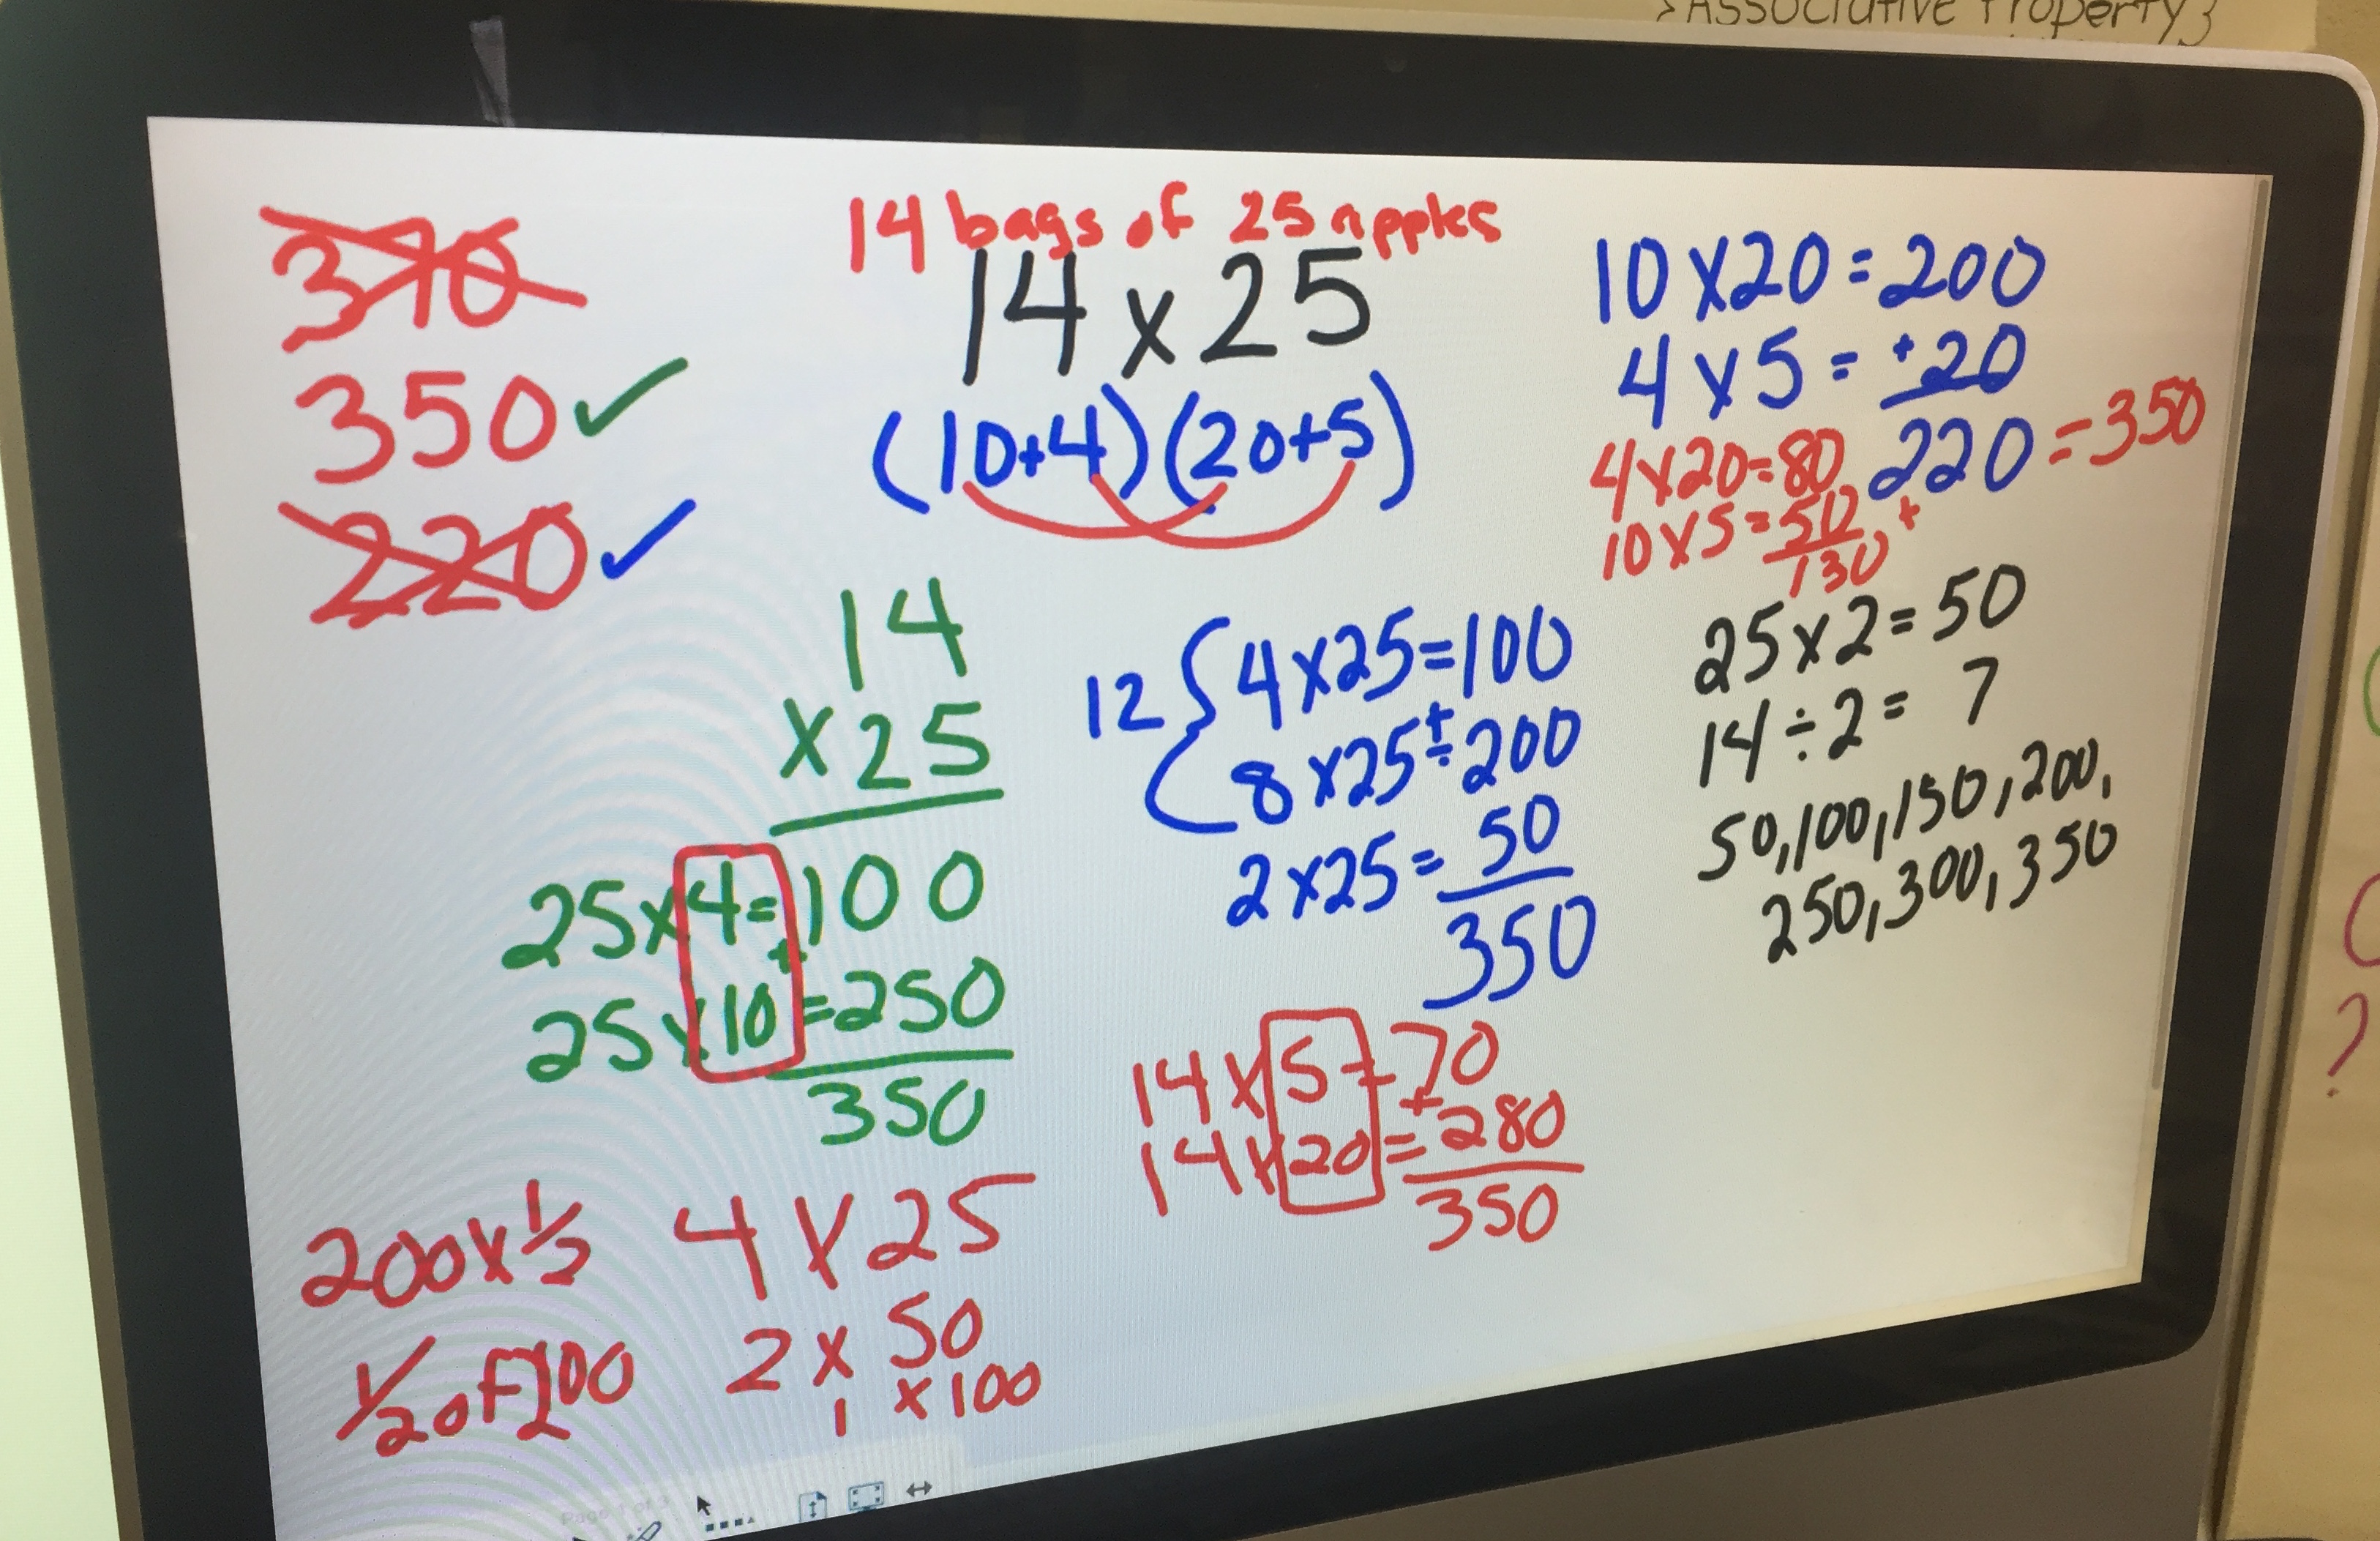 Associative Property
14 bags of 25 apples
14 x 25
(10+4)(20+5)
350
220
10 x 20 = 200
4 x 5 = +20
220 = 350
4 x 20 = 80
10 x 5 = 50 +
130
14
x 25
25 x 4 = 100
+
25 x 10 = 250
350
12 { 4 x 25 = 100
+
8 x 25 = 200
2 x 25 = 50
350
25 x 2 = 50
14 ÷ 2 = 7
50, 100, 150, 200,
250, 300, 350
14 x 5 = 70
+
14 x 20 = 280
350
200 x 1/2
1/2 of 200
4 x 25
2 x 50
1 x 100
Page 1 of 3
?